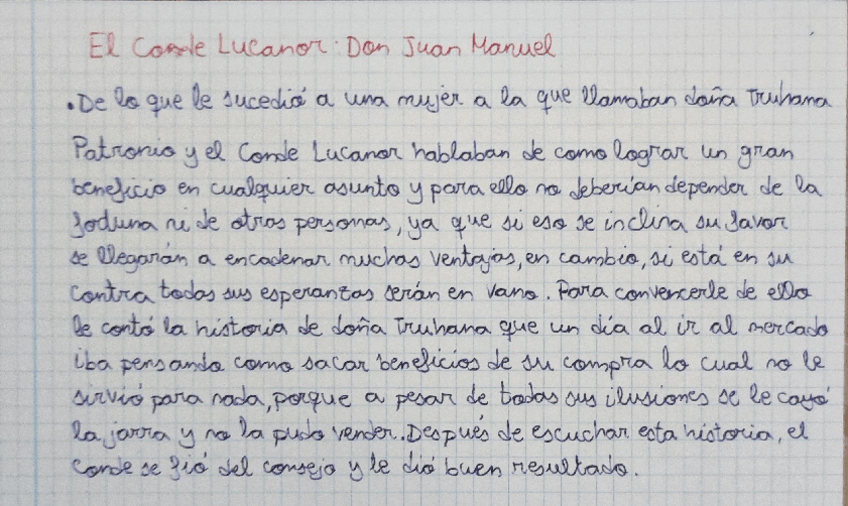 El Conde Lucanor: Don Juan Manuel
• De lo que le sucedió a una mujer a la que llamaban doña Truhana
Patronio y el Conde Lucanor hablaban de como lograr un gran
beneficio en cualquier asunto y para ello no deberían depender de la
foduna ni de otras personas, ya que si eso se inclina su favor
se llegarán a encadenar muchas ventajas, en cambio, si está en su
contra todas sus esperanzas serán en vano. Para convencerle de ello
le contó la historia de doña Truhana que un día al ir al mercado
iba pensando como sacar beneficios de su compra lo cual no le
sirvió para nada, porque a pesar de todas sus ilusiones se le cayó
la jarra y no la pudo vender. Después de escuchar esta historia, el
conde se fió del consejo y le dió buen resultado.